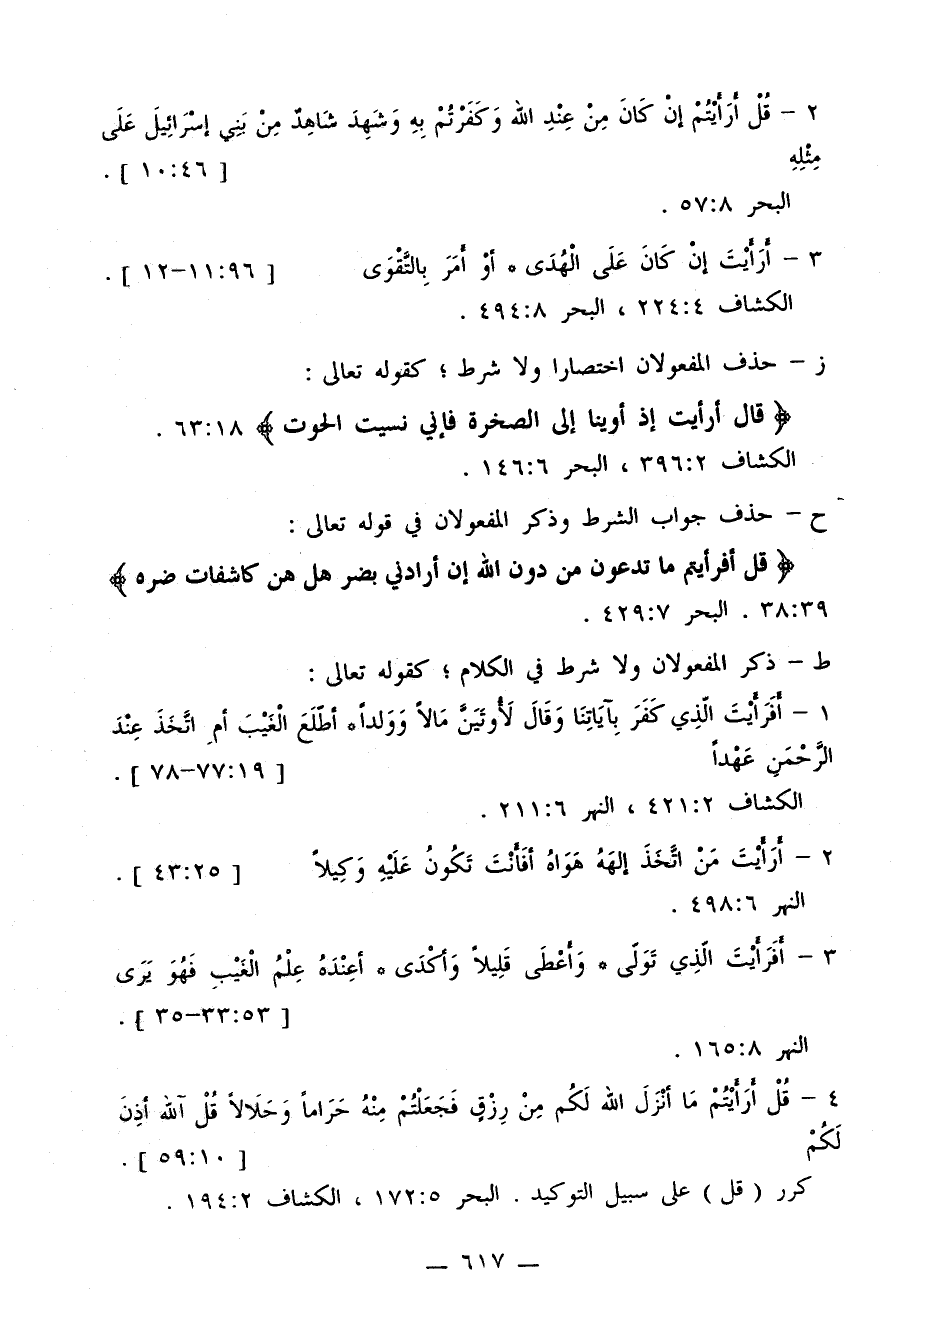 ٢ – قُلْ أَرَأَيْتُمْ إنْ كَانَ مِنْ عِنْدِ الله وَكَفَرْتُمْ بِهِ وَشَهِدَ شَاهِدٌ مِنْ بَنِي إسْرَائِيلَ عَلَى
مِثْلِهِ [ ١٠:٤٦ ] .
البحر ٥٧:٨ .
٣ – أَرَأَيْتَ إنْ كَانَ عَلَى الْهُدَى * أوْ أَمَرَ بِالتَّقْوَى [ ١١:٩٦–١٢ ] .
الكشاف ٢٢٤:٤ ، البحر ٤٩٤:٨ .
ز – حذف المفعولان اختصارا ولا شرط ؛ كقوله تعالى :
﴿ قال أرأيت إذ أوينا إلى الصخرة فإني نسيت الحوت ﴾ ٦٣:١٨ .
الكشاف ٣٩٦:٢ ، البحر ١٤٦:٦ .
ح – حذف جواب الشرط وذكر المفعولان في قوله تعالى :
﴿ قل أفرأيتم ما تدعون من دون الله إن أرادني بضر هل هن كاشفات ضره ﴾
٣٨:٣٩ . البحر ٤٢٩:٧ .
ط – ذكر المفعولان ولا شرط في الكلام ؛ كقوله تعالى :
١ – أَفَرَأَيْتَ الَّذِي كَفَرَ بِآيَاتِنَا وَقَالَ لَأُوتَيَنَّ مَالاً وَوَلداً* أطَّلَعَ الْغَيْبَ أمِ اتَّخَذَ عِنْدَ
الرَّحْمَنِ عَهْداً [ ٧٧:١٩–٧٨ ] .
الكشاف ٤٢١:٢ ، النهر ٢١١:٦ .
٢ – أَرَأَيْتَ مَنْ اتَّخَذَ إلهَهُ هَوَاهُ أفَأَنْتَ تَكُونُ عَلَيْهِ وَكِيلاً [ ٤٣:٢٥ ] .
النهر ٤٩٨:٦ .
٣ – أَفَرَأَيْتَ الَّذِي تَوَلَّى * وَأَعْطَى قَلِيلاً وَأكْدَى * أعِنْدَهُ عِلْمُ الْغَيْبِ فَهُوَ يَرَى
[ ٣٣:٥٣–٣٥ ] .
النهر ١٦٥:٨ .
٤ – قُلْ أَرَأَيْتُمْ مَا أَنْزَلَ الله لَكُم مِنْ رِزْقٍ فَجَعَلْتُمْ مِنْهُ حَرَاماً وَحَلَالاً قُلْ آلله أذِنَ
لَكُمْ [ ٥٩:١٠ ] .
كرر ( قل ) على سبيل التوكيد . البحر ١٧٢:٥ ، الكشاف ١٩٤:٢ .
— ٦١٧ —